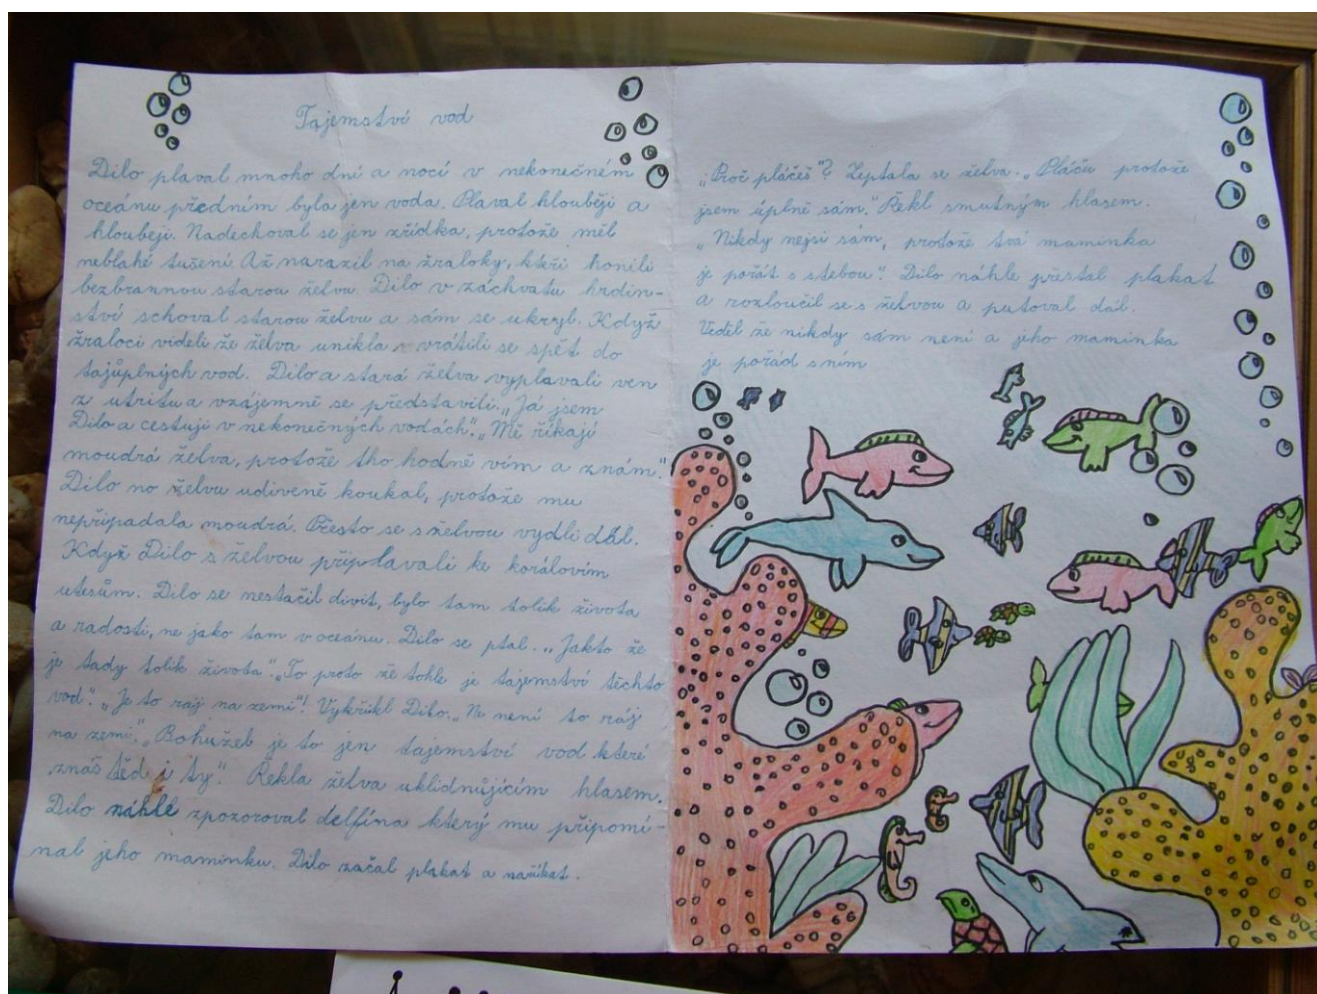 Tajemství vod
Dilo plaval mnoho dní a nocí v nekonečném
oceánu předním byla jen voda. Plaval hlouběji a
hlouběji. Nadechoval se jen zřídka, protože měl
neblahé tušení. Až narazil na žraloky, kteří honili
bezbrannou starou želvu. Dilo v záchvatu hrdin-
ství schoval starou želvu a sám se ukryl. Když
žraloci viděli že želva unikla, vrátili se spět do
tajůplných vod. Dilo a stará želva vyplavali ven
z utritu a vzájemně se představili. „Já jsem
Dilo a cestuji v nekonečných vodách". „Mě říkají
moudrá želva, protože tho hodně vím a znám."
Dilo no želvu udiveně koukal, protože mu
nepřipadala moudrá. Přesto se s želvou vydli dál.
Když Dilo s želvou připlavali ke korálovím
utesům. Dilo se nestačil divit, bylo tam tolik života
a radosti, ne jako tam v oceánu. Dilo se ptal. „Jakto že
je tady tolik života". „To proto že tohle je tajemství těchto
vod". „Je to ráj na zemi"! Vykřikl Dilo. „Ne není to ráj
na zemi". „Bohužel je to jen tajemství vod které
znáš těd i ty". Řekla želva uklidnůjícím hlasem.
Dilo náhle zpozoroval delfína který mu připomí-
nal jeho maminku. Dilo začal plakat a naříkat.
„Proč pláčeš"? Zeptala se želva. „Pláču protože
jsem úplně sám." Řekl smutným hlasem.
„Nikdy nejsi sám, protože tvá maminka
je pořát s stebou". Dilo náhle přestal plakat
a rozloučil se s želvou a putoval dál.
Věděl že nikdy sám není a jeho maminka
je pořád s ním